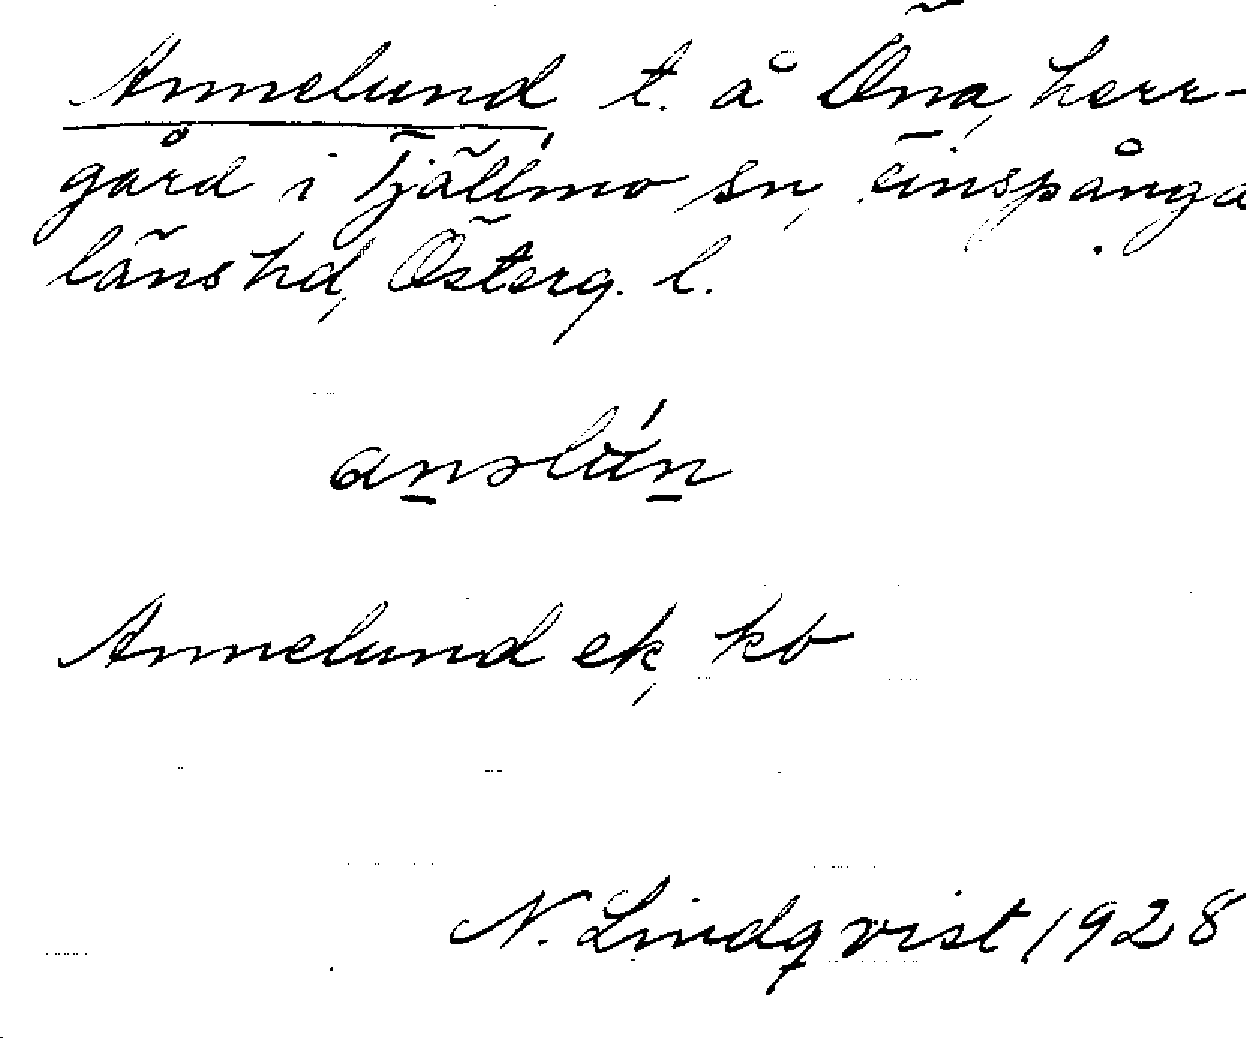 Annelund t. å Öna, herr-
gård i Tjällmo sn, Finspånga
läns hd, Österg. l.
anəlún
Annelund ek, kb
N. Lindqvist 1928